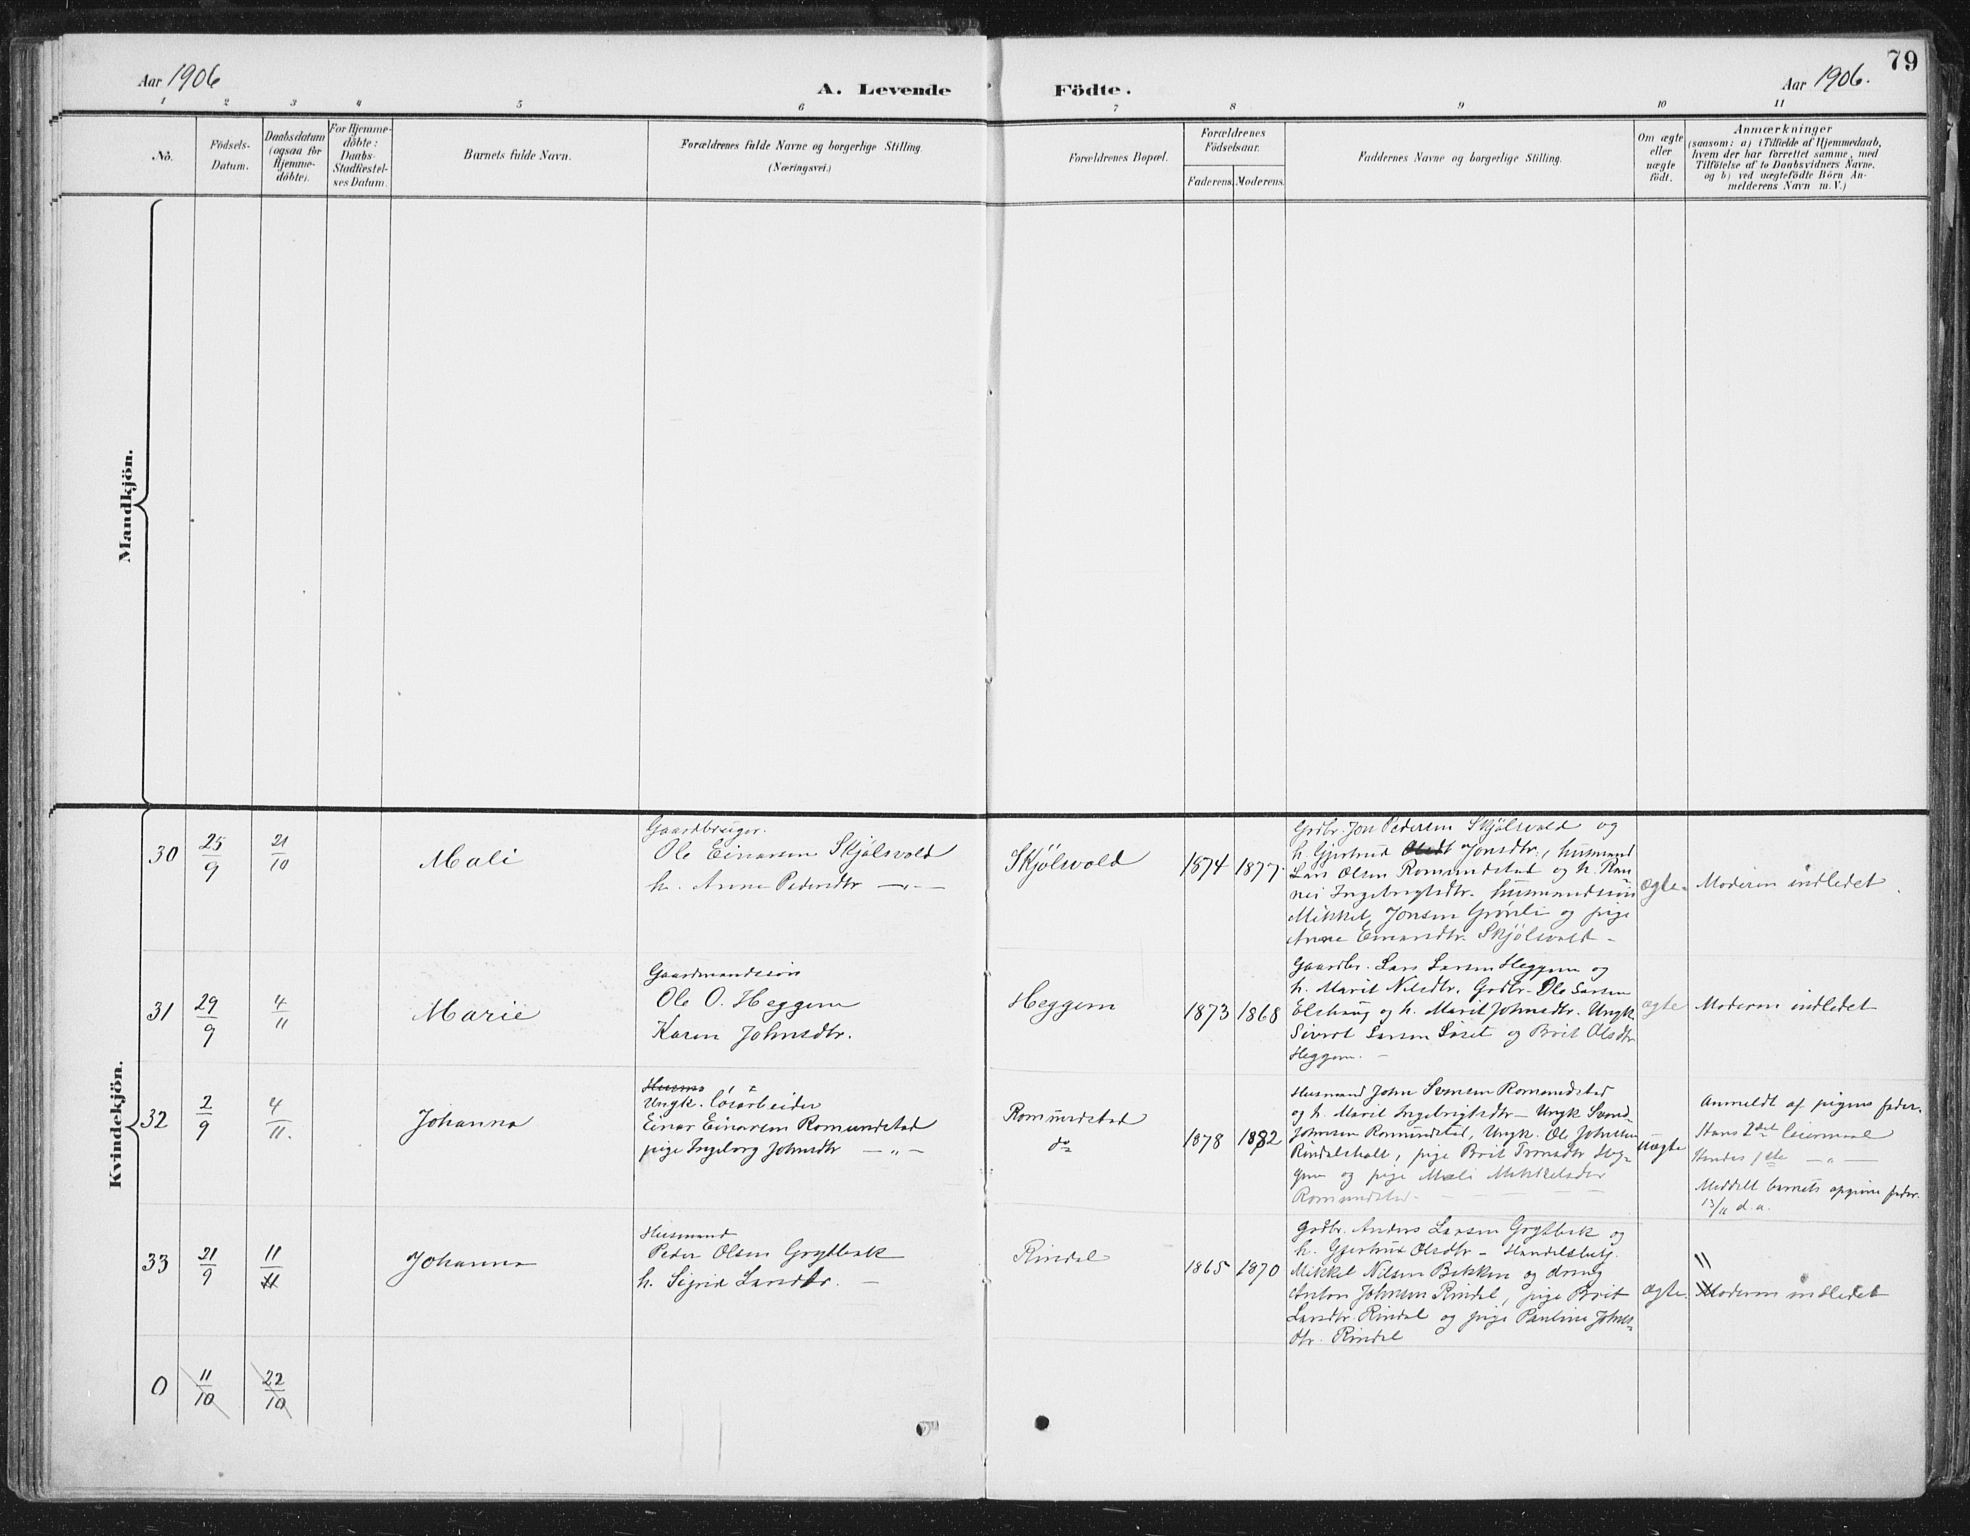 Aar 1906
A. Levende Födte.
Aar 1906.
79
1 2 3 4 5 6 7 8 9 10 11
No.
Födsels-
Datum.
Daabsdatum
(ogsaa for
Hjemme-
döbte).
For Hjemme-
döbte:
Daabs-
Stadfæstel-
ses Datum.
Barnets fulde Navn.
Forældrenes fulde Navne og borgerlige Stilling
(Næringsvei.)
Forældrenes Bopæl.
Forældrenes
Födselsaar.
Faderens. Moderens.
Faddernes Navne og borgerlige Stilling.
Om ægte
eller
uægte
födt.
Anmærkninger
(saasom: a) i Tilfælde af Hjemmedaab,
hvem der har forrettet samme, med
Tilföielse af to Daabsvidners Navne.
og b) ved uægtefödte Börn An-
melderens Navn m. V.)
Mandkjön.
Kvindekjön.
30
25/9
21/10
Mali
Gaardbruger.
Ole Einarsen Skjölsvold
h. Anne Pedersdtr —„—
Skjölsvold
1874 1877.
Grdbr. Jon Pedersen Skjölsvold og
h. Gjertrud Jonsdtr., husmand
Lars Olsen Romundstad og h. Ran-
nei Ingebrigtsdtr. husmandssön
Mikkel Jonsen Grönli og pige
Anne Einarsdtr. Skjölsvold –
ægte.
Moderen indledet
31
29/9
4/11
Marie
Gaardmandssön
Ole O. Heggem
Karen Johnsdtr.
Heggem
1873 1868
Gaardbr. Lars Larsen Heggem og
h. Marit Nilsdtr. Grdbr. Ole Larsen
Elshaug og h. Marit Johnsdtr. Ungk.
Sivert Larsen Löset og Brit Olsdtr
Heggem. –
ægte
Moderen indledet
32
2/9
4/11.
Johanna
Husma
Ungk. lösarbeider
Einar Einarsen Romundstad
pige Ingeborg Johnsdtr —„—
Romundstad
do
1878 1882
Husmand John Svensen Romundstad
og h. Marit Ingebrigtsdtr – Ungk Svend
Johnsen Romundstad, Ungk. Ole Johnsen
Rindalsholt, pige Brit Tronsdtr Heg-
gem og pige Mali Mikkelsdtr
Romundstad. –
uægte
Anmeldt af pigens fader.
Hans 2det leiermaal
Hendes 1ste —„—
Meddelt barnets opgivne fader
13/11 d. a.
33
21/9
11/11
Johanna
Husmand
Peder Olsen Grytbak
h. Sigrid Larsdtr. –
Rindal
1865 1870
Grdbr. Anders Larsen Grytbak og
h. Gjertrud Olsdtr – Handelsbetj.
Mikkel Nilsen Bakken og dreng
Anton Johnsen Rindal, pige Brit
Larsdtr. Rindal og pige Pauline Johns-
dtr. Rindal
ægte.
11
Moderen indledet
0
11/10
22/10